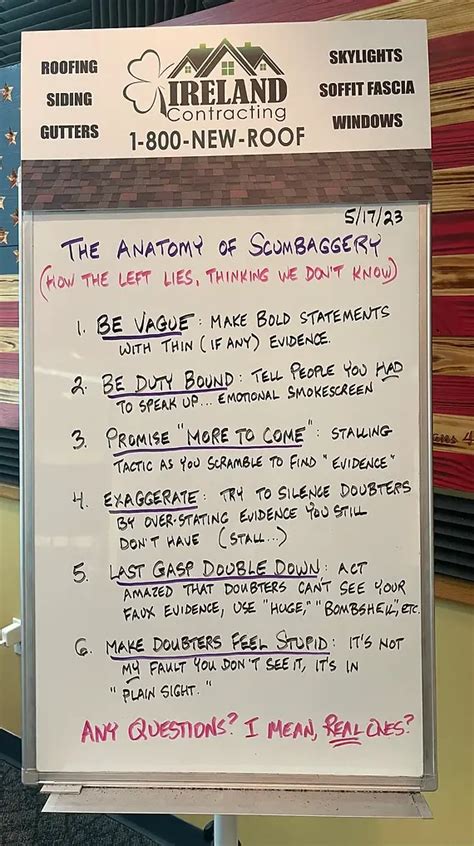 ROOFING
SIDING
GUTTERS
IRELAND
Contracting
1-800-NEW-ROOF
SKYLIGHTS
SOFFIT FASCIA
WINDOWS
5/17/23
THE ANATOMY OF SCUMBAGGERY
(HOW THE LEFT LIES, THINKING WE DON'T KNOW)
1. BE VAGUE: MAKE BOLD STATEMENTS
WITH THIN (IF ANY) EVIDENCE.
2. BE DUTY BOUND: TELL PEOPLE YOU HAD
TO SPEAK UP... EMOTIONAL SMOKESCREEN
3. PROMISE "MORE TO COME": STALLING
TACTIC AS YOU SCRAMBLE TO FIND "EVIDENCE"
4. EXAGGERATE: TRY TO SILENCE DOUBTERS
BY OVER-STATING EVIDENCE YOU STILL
DON'T HAVE (STALL...)
5. LAST GASP DOUBLE DOWN: ACT
AMAZED THAT DOUBTERS CAN'T SEE YOUR
FAUX EVIDENCE, USE "HUGE," "BOMBSHELL," ETC.
6. MAKE DOUBTERS FEEL STUPID: IT'S NOT
MY FAULT YOU DON'T SEE IT, IT'S IN
"PLAIN SIGHT."
ANY QUESTIONS? I MEAN, REAL ONES?